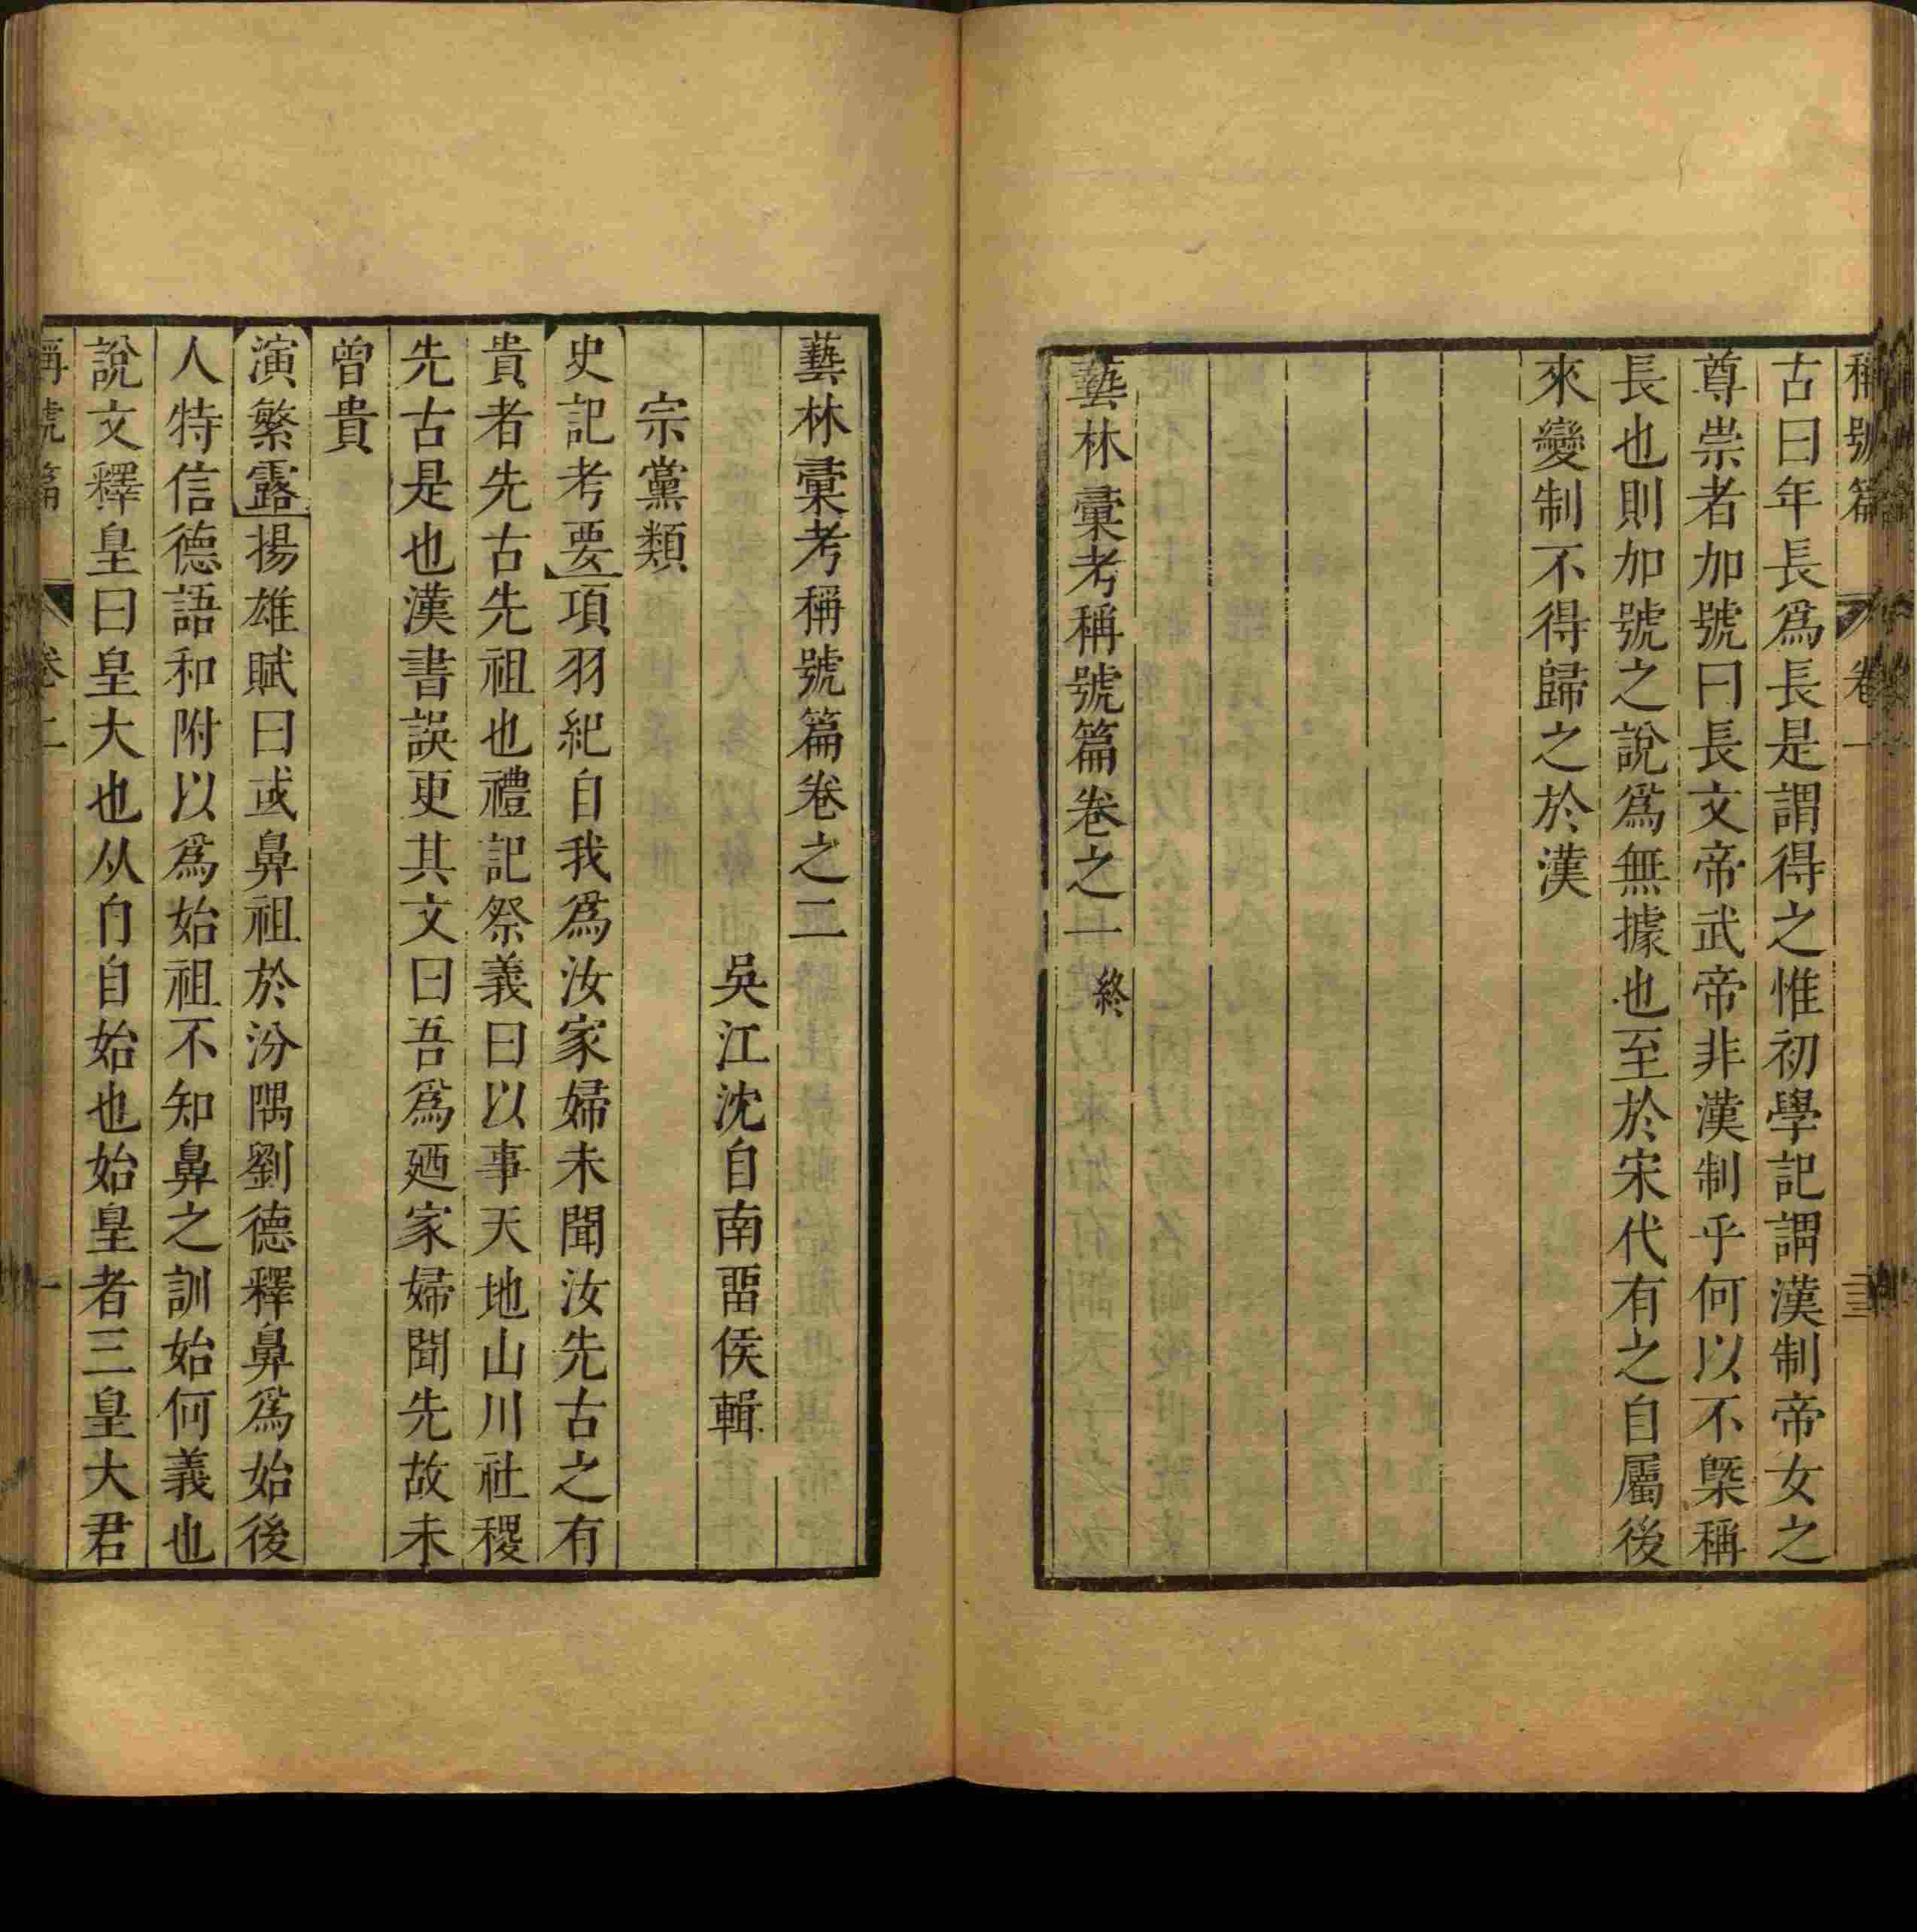 稱號篇 卷一 三
古曰年長爲長是謂得之惟初學記謂漢制帝女之
尊崇者加號曰長文帝武帝非漢制乎何以不槩稱
長也則加號之說爲無據也至於宋代有之自屬後
來變制不得歸之於漢
藝林彙考稱號篇卷之一 終
藝林彙考稱號篇卷之二
吳江沈自南畱侯輯
宗黨類
史記考要項羽紀自我爲汝家婦未聞汝先古之有
貴者先古先祖也禮記祭義曰以事天地山川社稷
先古是也漢書誤更其文曰吾爲廼家婦聞先故未
曾貴
演繁露揚雄賦曰或鼻祖於汾隅劉德釋鼻爲始後
人特信德語和附以爲始祖不知鼻之訓始何義也
說文釋皇曰皇大也从自自始也始皇者三皇大君
稱號篇 卷二 一